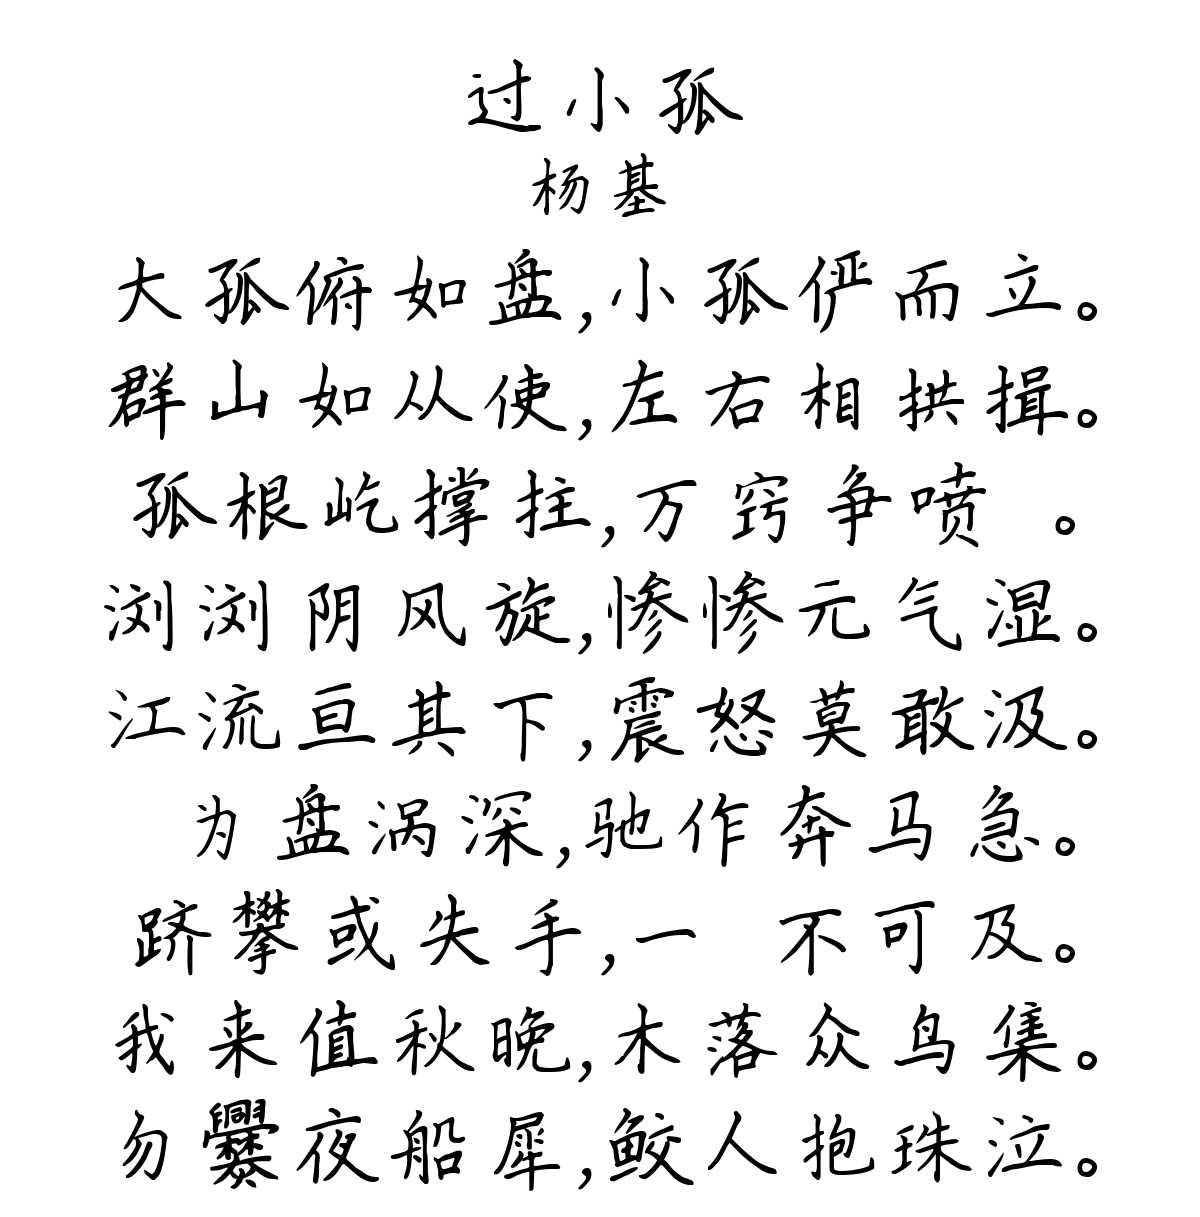 过小孤
杨基
大孤俯如盘,小孤俨而立。
群山如从使,左右相拱揖。
孤根屹撑拄,万窍争喷 。
浏浏阴风旋,惨惨元气湿。
江流亘其下,震怒莫敢汲。
为盘涡深,驰作奔马急。
跻攀或失手,一 不可及。
我来值秋晚,木落众鸟集。
勿爨夜船犀,鲛人抱珠泣。